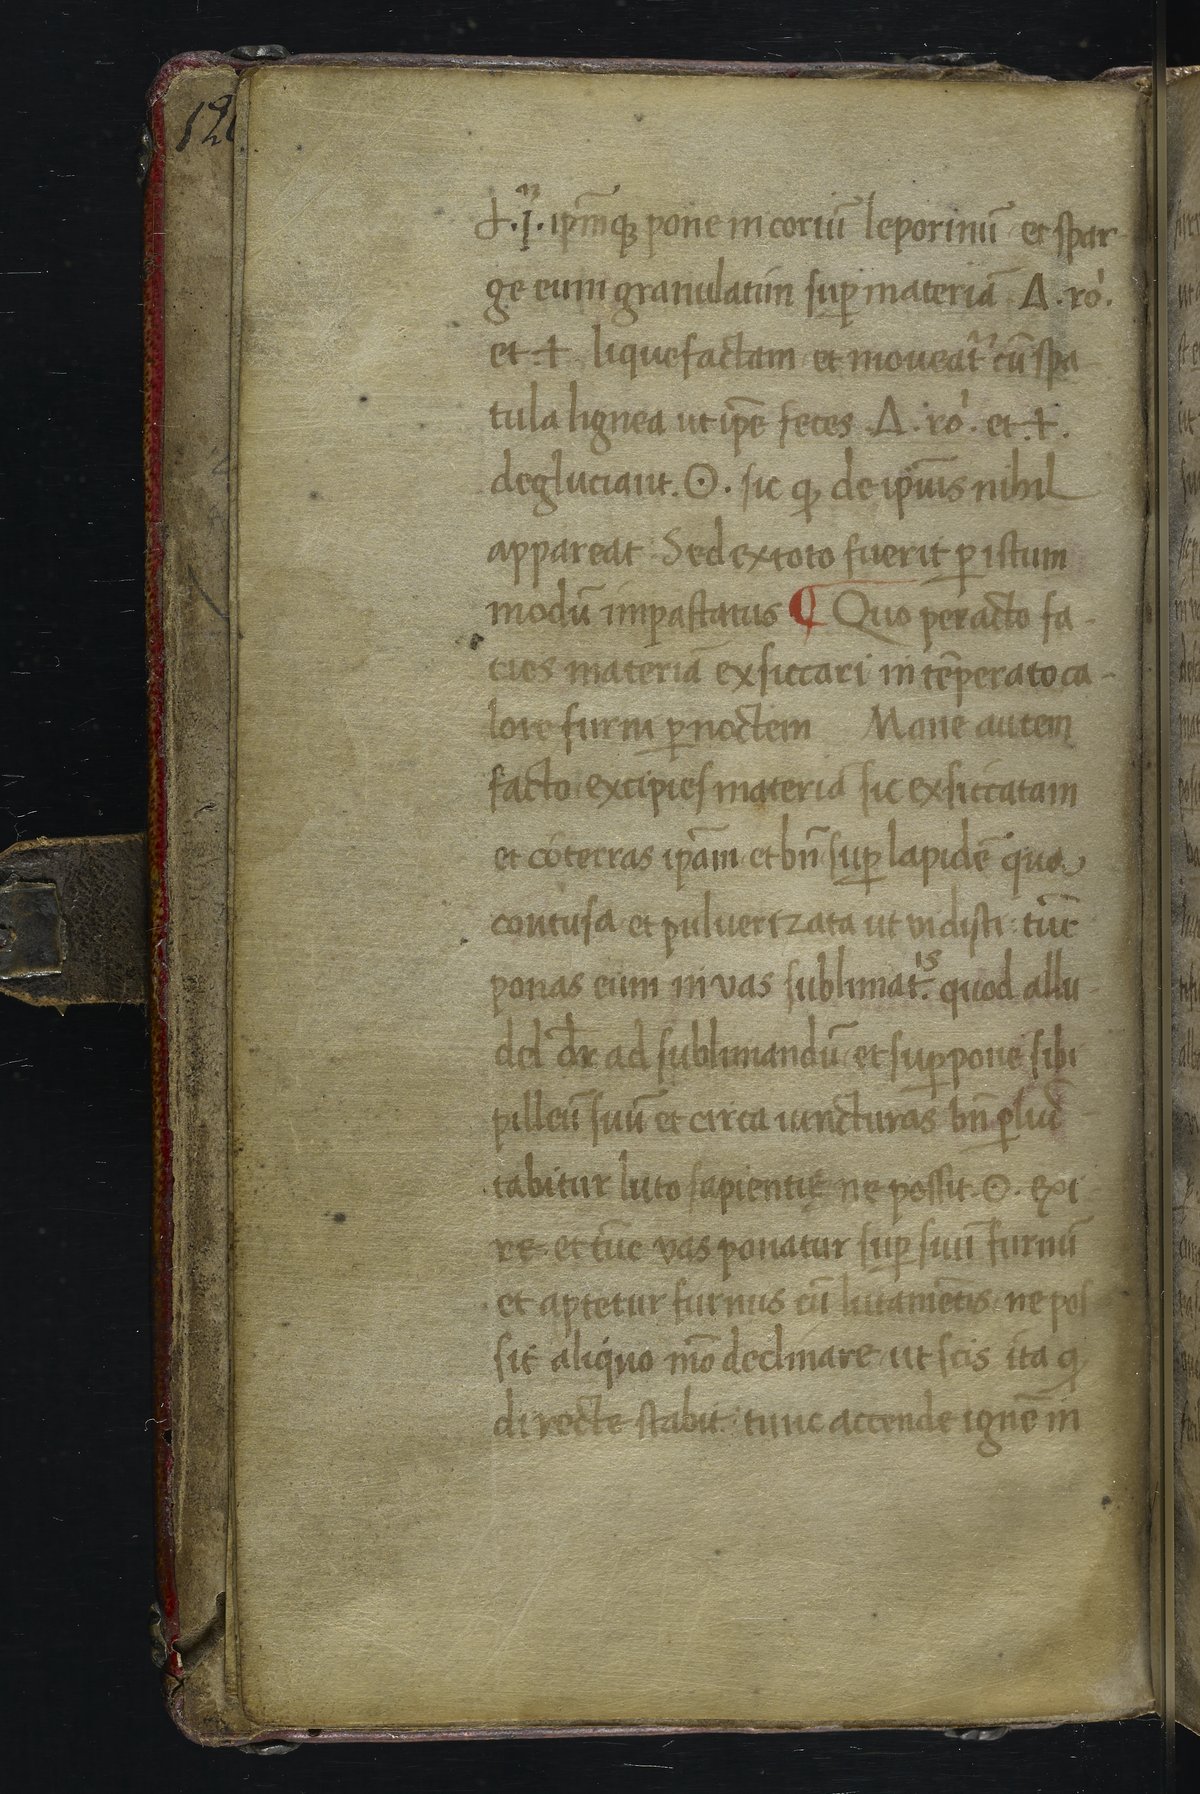 126
.I. ip̄mq̨ pone in coriū leporinū et spar-
ge eum granulatim sup̱ materiā Δ. ro.
et .┼. liquefactam et moveat᷑ cū spa
tula lignea ut ip̄e feces Δ. ro. et .┼.
degluciant. ☉. sic q̨ de ip̄uis nihil
appareat. Sed ex toto fuerit p̱ istum
modū imp̱astatus ¶ Quo peracto fa-
cies materiā exsiccari in tēperato ca-
lore furni p̱ noctem Mane autem
facto excipies materiā sic exsiccatam
et cōterras ip̄am et bn̄ sup̱ lapidē qua
contusa et pulverizata ut vidisti tūc
ponas eum in vas sublimat.ˢ quod allu-
del dr̄ ad sublimandū et sup̱pone sibi
pilleū suū et circa iuncturas bn̄ p̱lu-
tabitur luto sapientie ne possit. ☉. exi
re et tūc vas ponatur sup̱ suū furnū
et aptetur furnus cū lutamētis ne pos
sit aliquo mō declinare ut scis ita q̨
directe stabit. tunc accende ignē in